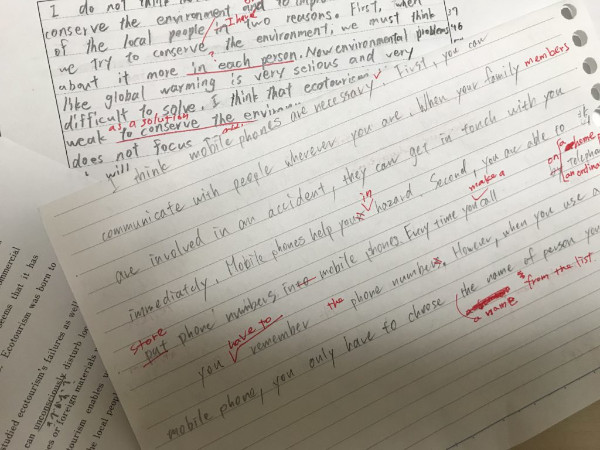 I do not think
conserve the environment and to impro
of the local people in two reasons. First, when
I have
we try to conserve the environment, we must think
?
about it more in each person. Now environmental problems
like global warming is very serious and very
difficult to solve. I think that ecotourism
as a solution
weak to conserve the environ
does not focus
will
37
46
I think mobile phones are necessary. First, you can
communicate with people wherever you are. When your family members
are involved in an accident, they can get in touch with you
in
immediately. Mobile phones help your hazard. Second, you are able to
store
put phone numbers into mobile phones. Every time you call
make a
on a home p
telepho
(an ordina
it,
have to
you remember the phone numbers. However, when you use a
mobile phone, you only have to choose (the name of person you
a name from the list
mmercial
eems that it has
Ecotourism was born to
studied ecotourism's failures as well
can unconsciously disturb loc
es or foreign materials
tourism enables v
he local peopl